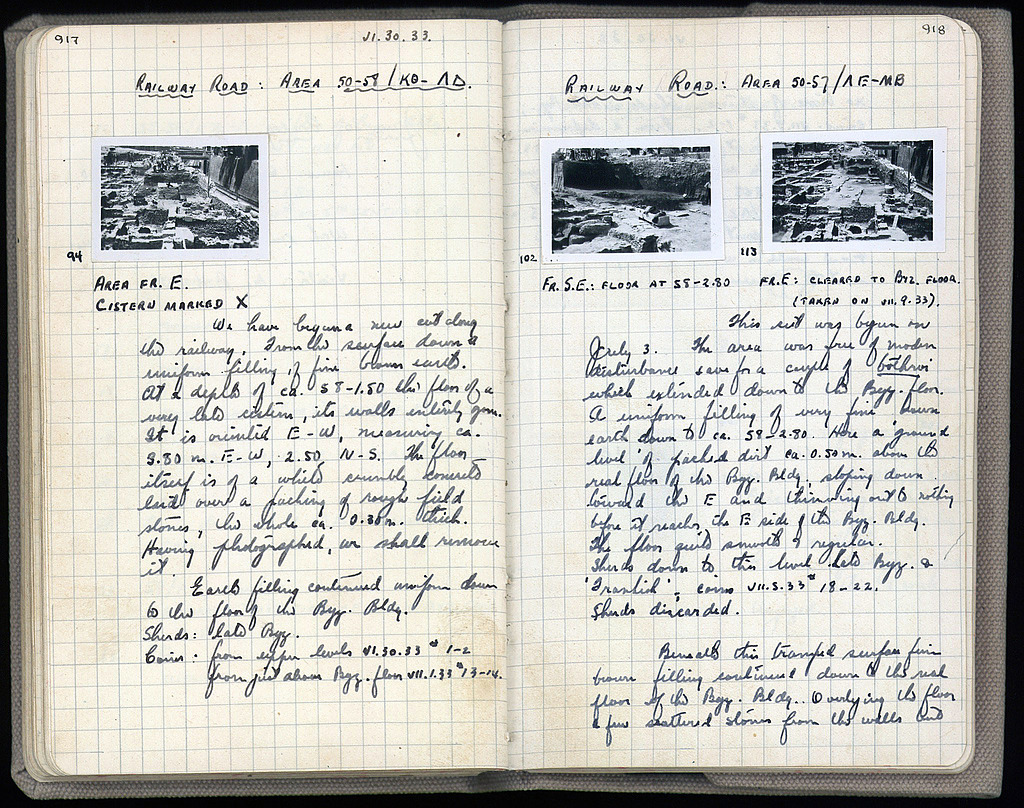 917
VI.30.33.
RAILWAY ROAD: AREA 50-58/KΘ-ΛΔ.
94
AREA FR. E.
CISTERN MARKED X
We have begun a new cut along
the railway. From the surface down a
uniform filling of fine brown earth.
At a depth of ca. 58-1.50 the floor of a
very late cistern, its walls entirely gone.
It is oriented E-W, measuring ca.
3.80 m. E-W, 2.50 N-S. The floor
itself is of a white crumbly concrete
laid over a packing of rough field
stones, the whole ca. 0.30 m. thick.
Having photographed, we shall remove
it.
Earth filling continued uniform down
to the floor of the Byz. Bldg.
Sherds: late Byz.
Coins: from upper levels VI.30.33 # 1-2
from just above Byz. floor VII.1.33 # 13-14.
918
RAILWAY ROAD.: AREA 50-57/ΛE-MB
102
113
FR. S.E.: FLOOR AT 58-2.80
FR.E: CLEARED TO BYZ. FLOOR.
(TAKEN ON VII.9.33).
This cut was begun on
July 3. The area was free of modern
disturbance save for a couple of bothroi
which extended down to the Byz. floor.
A uniform filling of very fine brown
earth down to ca. 58-2.80. Here a 'ground
level' of packed dirt ca. 0.50 m. above the
real floor of the Byz. Bldg., sloping down
toward the E and thinning out to nothing
before it reaches the E side of the Byz. Bldg.
The floor quite smooth & regular.
Sherds down to this level late Byz. &
'Frankish'; coins VII.5.33 # 18-22.
Sherds discarded.
Beneath this tramped surface fine
brown filling continued down to the real
floor of the Byz. Bldg.. Overlying the floor
a few scattered stones from the walls and